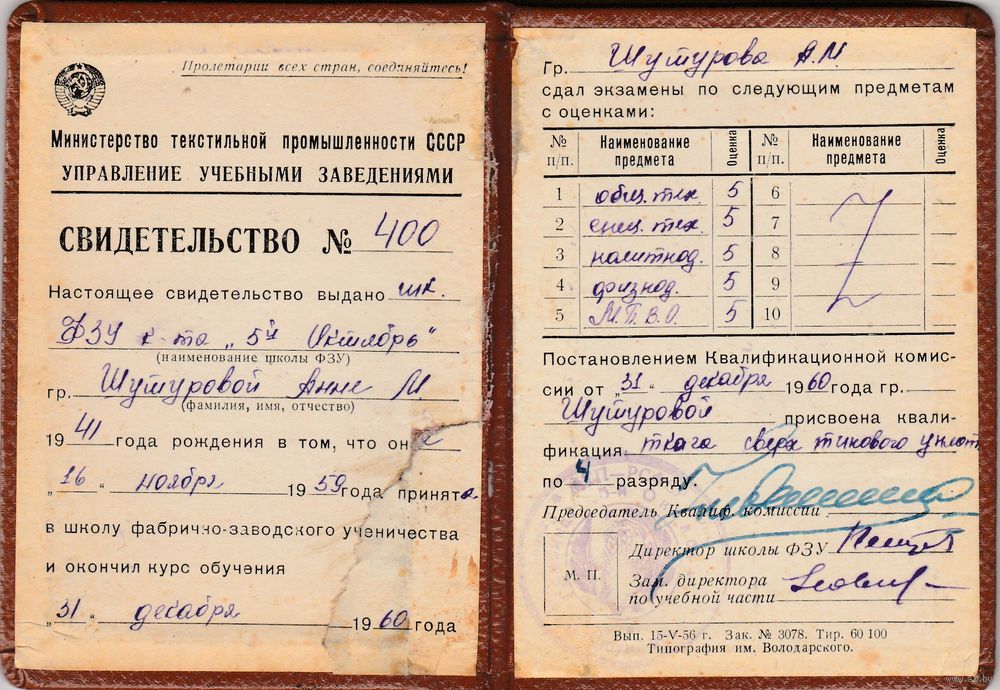 Пролетарии всех стран, соединяйтесь!
Министерство текстильной промышленности СССР
УПРАВЛЕНИЕ УЧЕБНЫМИ ЗАВЕДЕНИЯМИ
СВИДЕТЕЛЬСТВО № 400
Настоящее свидетельство выдано шк.
ФЗУ к-та „5й Октябрь"
(наименование школы ФЗУ)
гр. Шутуровой Анне М.
(фамилия, имя, отчество)
1941 года рождения в том, что она
„16" ноября 1959 года принята
в школу фабрично-заводского ученичества
и окончил курс обучения
„31" декабря 1960 года
Гр. Шутурова А.М
сдал экзамены по следующим предметам
с оценками:
№ п/п. Наименование предмета Оценка № п/п. Наименование предмета Оценка
1 общ. тех. 5 6
2 спец. тех. 5 7
3 политпод. 5 8
4 физпод. 5 9
5 М.П.В.О. 5 10
Постановлением Квалификационной комис-
сии от „31" декабря 1960 года гр.
Шутуровой присвоена квали-
фикация ткача сверх типового уплот
по 4 разряду.
Председатель Квалиф. комиссии
Директор школы ФЗУ
М. П.
Зам. директора
по учебной части
Вып. 15-V-56 г. Зак. № 3078. Тир. 60 100
Типография им. Володарского.
www.ay.by